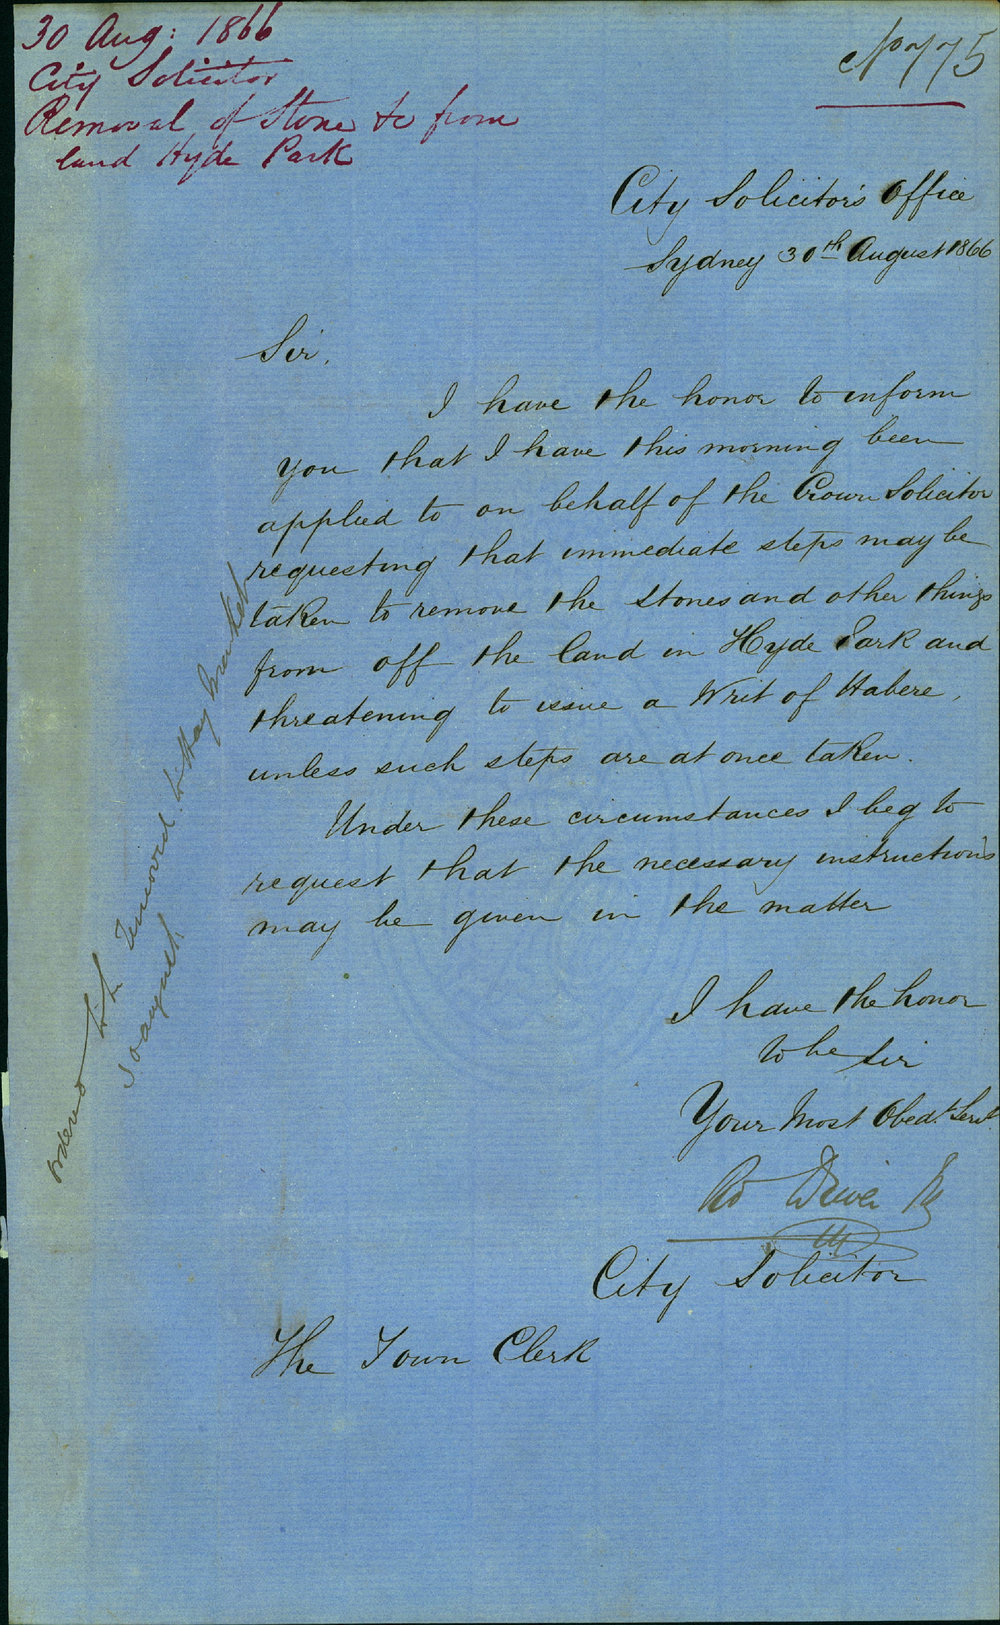 30 Aug: 1866
City Solicitor
Removal of Stone &c from
land Hyde Park
No 775
City Solicitor's Office
Sydney 30th August 1866
Sir,
I have the honor to inform
you that I have this morning been
applied to on behalf of the Crown Solicitor
requesting that immediate steps may be
taken to remove the stones and other things
from off the land in Hyde Park and
threatening to issue a Writ of Habere,
unless such steps are at once taken.
Under these circumstances I beg to
request that the necessary instructions
may be given in the matter
I have the honor
to be Sir
Your Most Obedt. Servt.
Rd Driver Jr
City Solicitor
The Town Clerk
ordered to be removed to Haymarket
30 august.